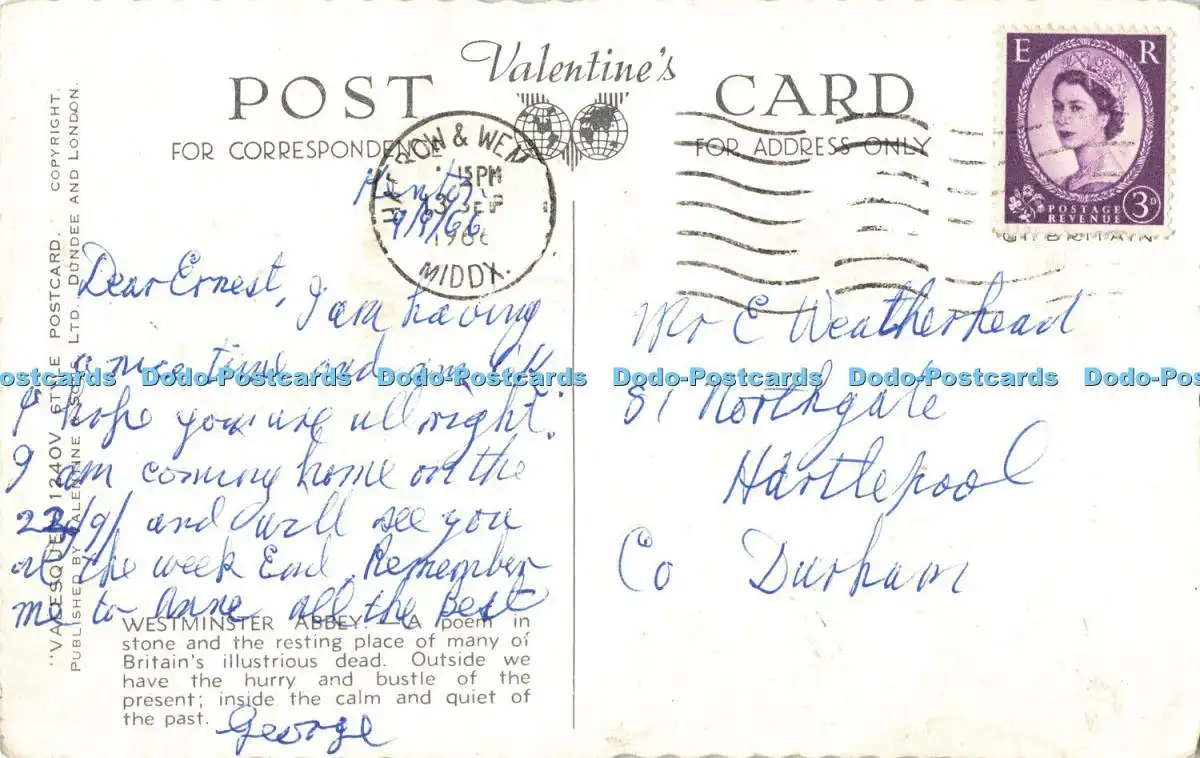 Valentine's
POST CARD
FOR CORRESPONDENCE
FOR ADDRESS ONLY
E R
POSTAGE
REVENUE
3D
GT. BRITAIN
HARROW & WEM
15PM
13 SEP
1966
MIDDX.
9/9/66
Dear Ernest, I am having
a nice time and am
I hope you are allright.
I am coming home on the
/9/ and will see you
at the week End. Remember
me to Anne all the Best
George
Mr E Weatherhead
81 Northgate
Hartlepool
Co Durham
WESTMINSTER ABBEY A poem in
stone and the resting place of many of
Britain's illustrious dead. Outside we
have the hurry and bustle of the
present; inside the calm and quiet of
the past.
"VALESQUE" STYLE POSTCARD. COPYRIGHT.
PUBLISHED BY VALENTINE LTD. DUNDEE AND LONDON.
Dodo-Postcards Dodo-Postcards Dodo-Postcards Dodo-Postcards Dodo-Postcards Dodo-Postcards